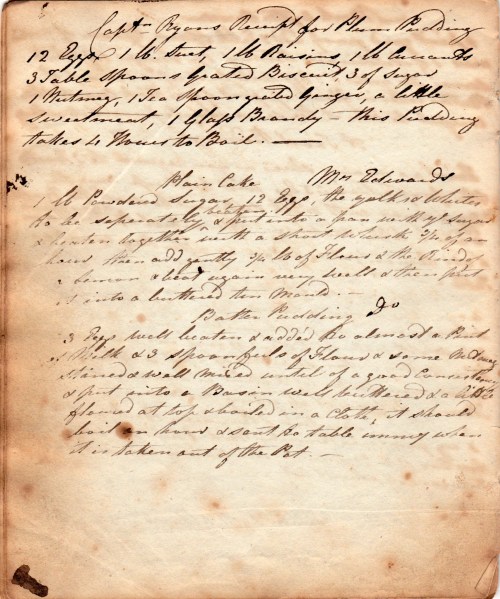 Captn Ryons Receipt for Plum Pudding
12 Eggs 1 lb. Suet, 1 lb Raisins, 1 lb Currants
3 Table Spoons Grated Biscuit 3 of Sugar
1 Nutmeg, 1 Tea Spoon grated Ginger, a little
Sweetmeat, 1 Glass Brandy – this Pudding
takes 4 Hours to Boil. —
Plain Cake Mrs Edwards
1 lb Powdered Sugar, 12 Eggs, the yolk & Whites
to be seperately beaten & put into a pan with ye Sugar
& beaten together with a short Whisk of an
hour then add gently lb of Flour & the Rind
Lemon & beat again very well & then put
it into a buttered tin Mould –
Batter Pudding Do
3 Eggs well beaten & added to almost a Pint
Milk & 3 spoonfuls of Flour & some Nutmeg
& well mixed until of a good Consistency
& put into a Basin well buttered & a little
flowed at top & boiled in a Cloth, it should
boil an hour & sent to table immy when
it is taken out of the Pot. –